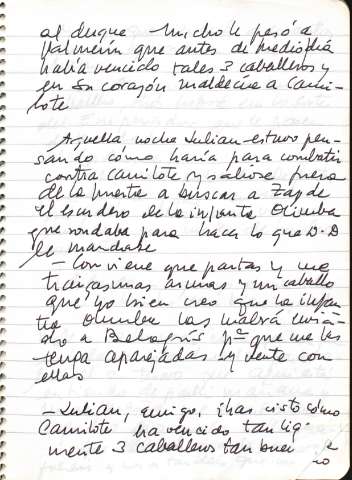 al duque Mucho le pesó a
Palmerín que antes de mediodía
había vencido tales 3 caballeros y
en su corazón maldecía a Cami-
lote.
Aquella noche Julian estuvo pen-
sando cómo haría para combatir
contra Camilote y salióse fuera
de la puerta a buscar a
el escudero de la infanta Olimba
que rondaba para hacer lo que D. D
le mandase
— Conviene que partas y me
traigas mis armas y un caballo
que yo bien creo que la infan-
ta Olimba las habrá envia-
do a pª que me las
tenga aparejadas y vente con
ellas
— Julian, amigo, ¿has visto cómo
Camilote ha vencido tan lig-
mente 3 caballeros tan buen